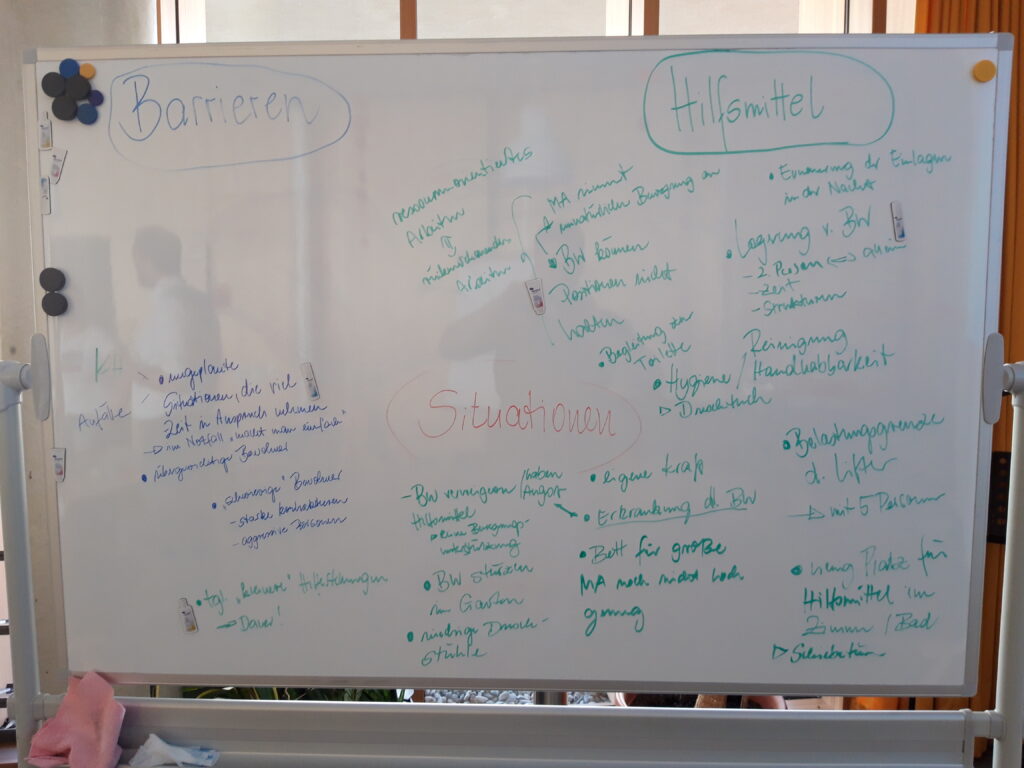 Barrieren
Hilfsmittel
ressourcenorientiertes
Arbeiten
⇕
rückenschonendes
Arbeiten
MA nimmt
unnatürlichen Bewegung an
• BW können
Positionen nicht
halten
• Begleitung zur
Toilette
• Erneuerung der Einlagen
in der Nacht
• Lagerung v. BW
- 2 Personen <=>
- Zeit
- Strukturen
• Hygiene / Reinigung
Handhabbarkeit
▷ Duschtuch
KH
Anfälle
• ungeplante
Situationen, die viel
Zeit in Anspruch nehmen
→ im Notfall „macht man einfach"
• übergewichtige Bewohner
• „schwierige" Bewohner
- starke Kontrakturen
- aggressive Personen
• tgl. „kleinere" Hilfestellungen
→ Dauer!
Situationen
- BW verweigern / haben Angst
Hilfsmittel
▷ keine Bewegungs-
unterstützung
• BW stürzen
im Garten
• niedrige Dusch-
stühle
• eigene Kraft
• Erkrankung d. BW
• Bett für große
MA noch nicht hoch
genug
• Belastungsgrenze
d. Lifter
→ mit 5 Personen
• wenig Platz für
Hilfsmittel im
Zimmer / Bad
▷ Schiebetür